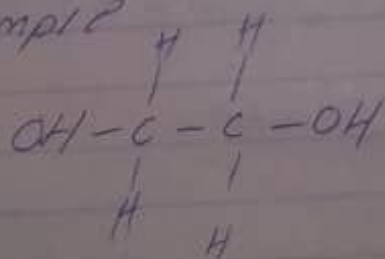 mple
H H
OH-C-C-OH
H
H